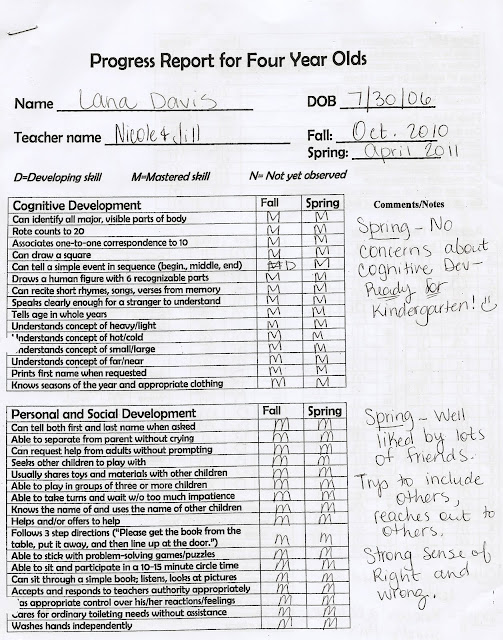 Progress Report for Four Year Olds
Name Lana Davis DOB 7/30/06
Teacher name Nicole & Jill Fall: Oct. 2010
Spring: April 2011
D=Developing skill M=Mastered skill N= Not yet observed
Cognitive Development Fall Spring
Can identify all major, visible parts of body M M
Rote counts to 20 M M
Associates one-to-one correspondence to 10 M M
Can draw a square M M
Can tell a simple event in sequence (begin., middle, end) D M
Draws a human figure with 6 recognizable parts M M
Can recite short rhymes, songs, verses from memory M M
Speaks clearly enough for a stranger to understand M M
Tells age in whole years M M
Understands concept of heavy/light M M
nderstands concept of hot/cold M M
nderstands concept of small/large M M
Understands concept of far/near M M
Prints first name when requested M M
Knows seasons of the year and appropriate clothing M M
Comments/Notes
Spring - No
concerns about
Cognitive Dev-
Ready for
Kindergarten!
Personal and Social Development Fall Spring
Can tell both first and last name when asked M M
Able to separate from parent without crying M M
Can request help from adults without prompting M M
Seeks other children to play with M M
Usually shares toys and materials with other children M M
Able to play in groups of three or more children M M
Able to take turns and wait w/o too much impatience M M
Knows the name of and uses the name of other children M M
Helps and/or offers to help M M
Follows 3 step directions ("Please get the book from the
table, put it away, and then line up at the door.") M M
Able to stick with problem-solving games/puzzles M M
Able to sit and participate in a 10-15 minute circle time M M
Can sit through a simple book; listens, looks at pictures M M
Accepts and responds to teachers authority appropriately M M
as appropriate control over his/her reactions/feelings M M
Cares for ordinary toileting needs without assistance M M
Washes hands independently M M
Spring - Well
liked by lots
of friends.
Trys to include
others,
reaches out to
others.
Strong sense of
Right and
wrong.